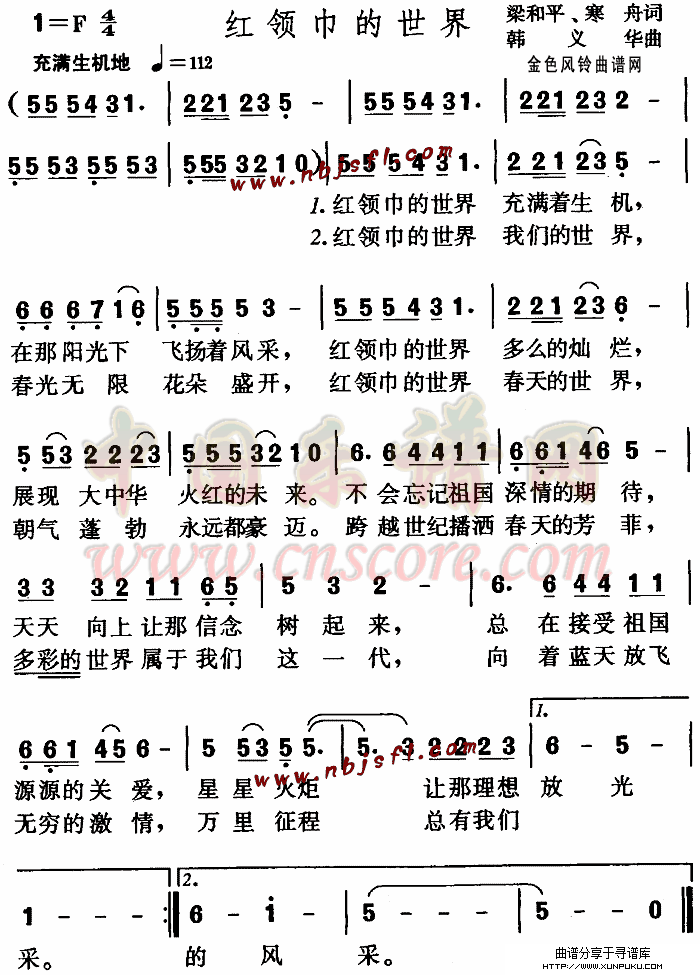 红领巾的世界
1=F 4/4
梁和平、寒 舟词
韩 义 华曲
充满生机地 ♩=112
金色风铃曲谱网
( 55 54 31. | 2 2 21 23 5 - | 55 54 31. | 2 2 21 23 2 - |
55 53 55 53 | 5 55 32 1 0 ) | 55 54 31. | 2 2 21 23 5 - |
www.nbjsfl.com
1.红领巾的世界 充满着生 机,
2.红领巾的世界 我们的世 界,
6 6 6 7 1 6 | 5 5 5 5 3 - | 55 54 31. | 2 2 21 23 6 - |
在那阳光下 飞扬着风采, 红领巾的世界 多么的灿 烂,
春光无 限 花朵 盛开, 红领巾的世界 春天的世 界,
5 53 22 23 | 5 55 32 1 0 | 6. 6 44 11 | 6 61 46 5 - |
展现 大中华 火红的未 来。 不 会忘记祖国 深情的期 待,
朝气 蓬 勃 永远都豪 迈。 跨 越世纪播洒 春天的芳 菲,
中国乐谱网
www.cnscore.com
33 32 11 65 | 5 3 2 - | 6. 6 44 11 |
天天 向上让那信念 树 起 来, 总 在接受祖国
多彩的世界属于我们 这 一 代, 向 着蓝天放飞
6 61 45 6 - | 5 53 5 5. | 5. 3 22 23 | 1. 6 - 5 - |
www.nbjsfl.com
源源的关 爱, 星 星 火炬 让那理想 放 光
无穷的激 情, 万 里 征程 总有我们
1 - - - :‖ 2. 6 - 1 - | 5 - - - | 5 - - 0 ‖
采。 的 风 采。
曲谱分享于寻谱库
HTTP://WWW.XUNPUKU.COM